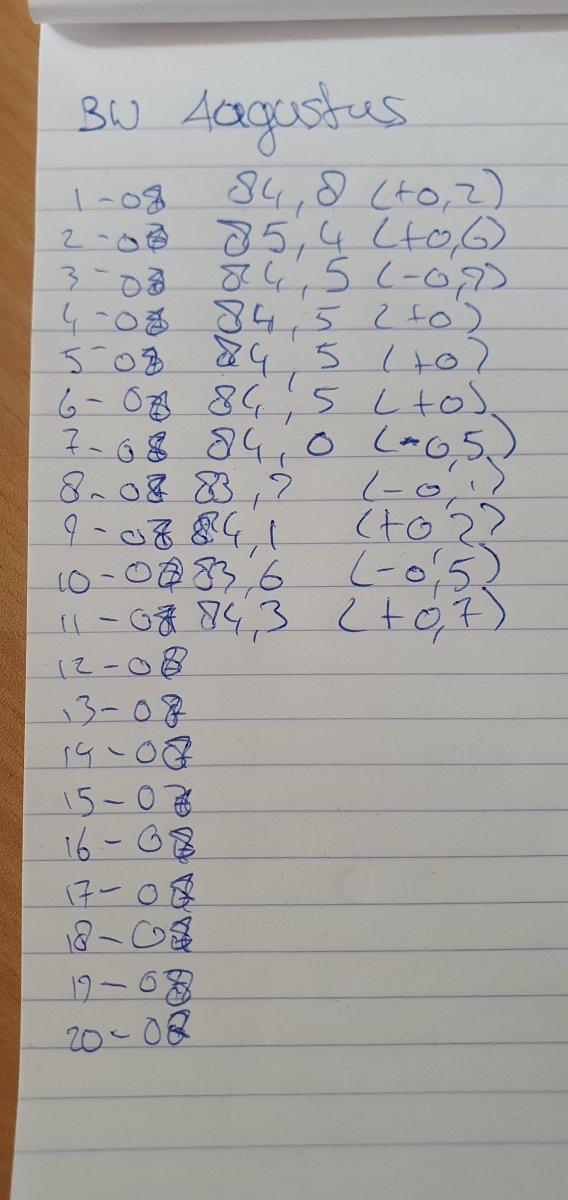 BW Aagustus
1-08 84,8 (+0,2)
2-08 85,4 (+0,6)
3-08 84,5 (-0,9)
4-08 84,5 (+0)
5-08 84,5 (+0)
6-08 84,5 (+0)
7-08 84,0 (-0,5)
8-08 83,9 (-0,1)
9-08 84,1 (+0,2)
10-08 83,6 (-0,5)
11-08 84,3 (+0,7)
12-08
13-08
14-08
15-08
16-08
17-08
18-08
19-08
20-08